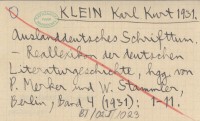 KLEIN Karl Kurt 1931.
Auslanddeutsches Schrifttum.
– Reallexikon der deutschen
Literaturgeschichte, hgg. von
P. Merker und W. Stammler,
Berlin, Band 4 (1931): 1-11.